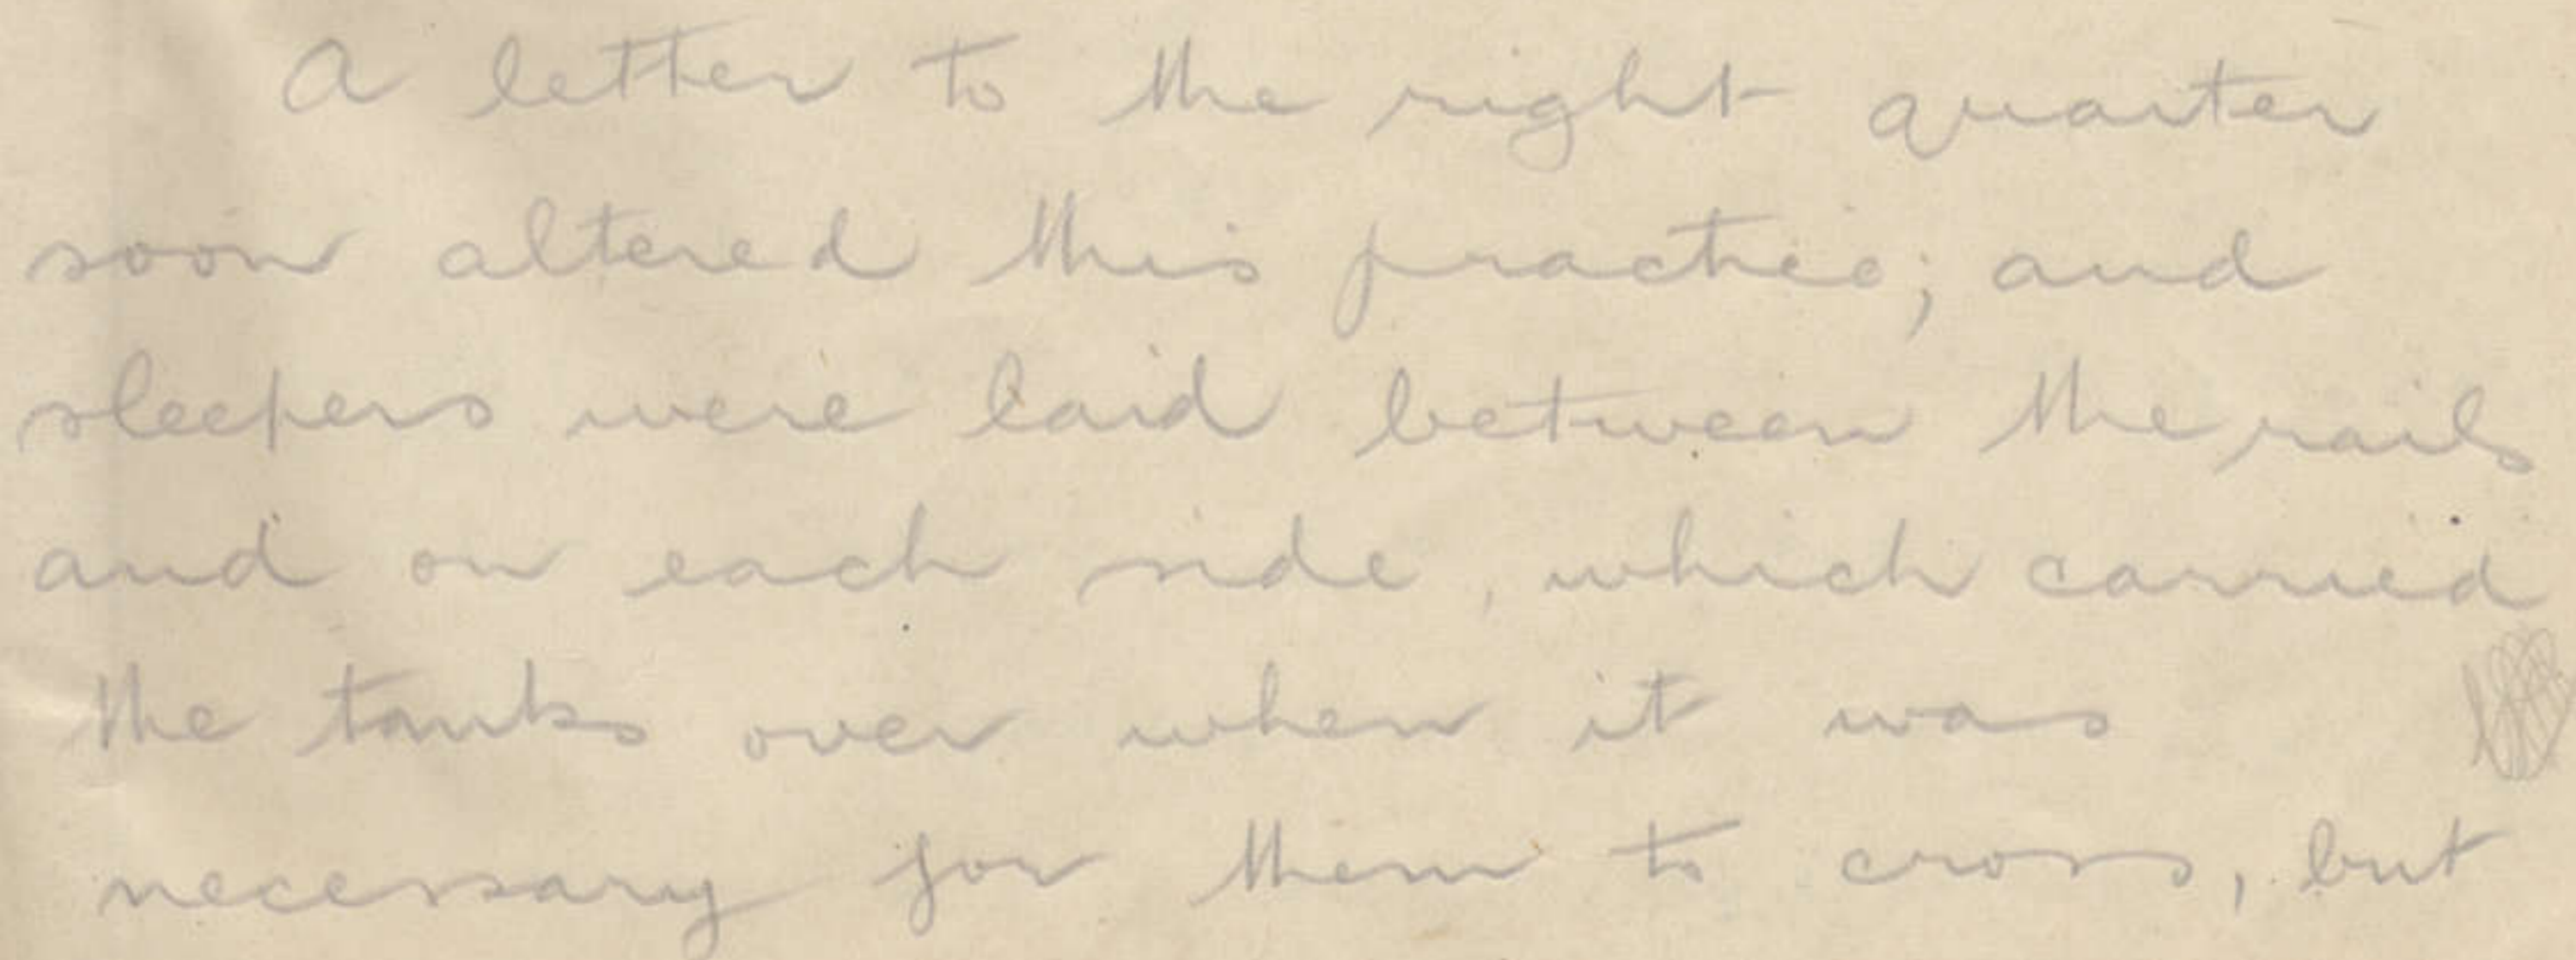 A letter to the right quarter
soon altered this practice; and
sleepers were laid between the rails
and on each side, which carried
the tanks over when it was
necessary for them to cross, but